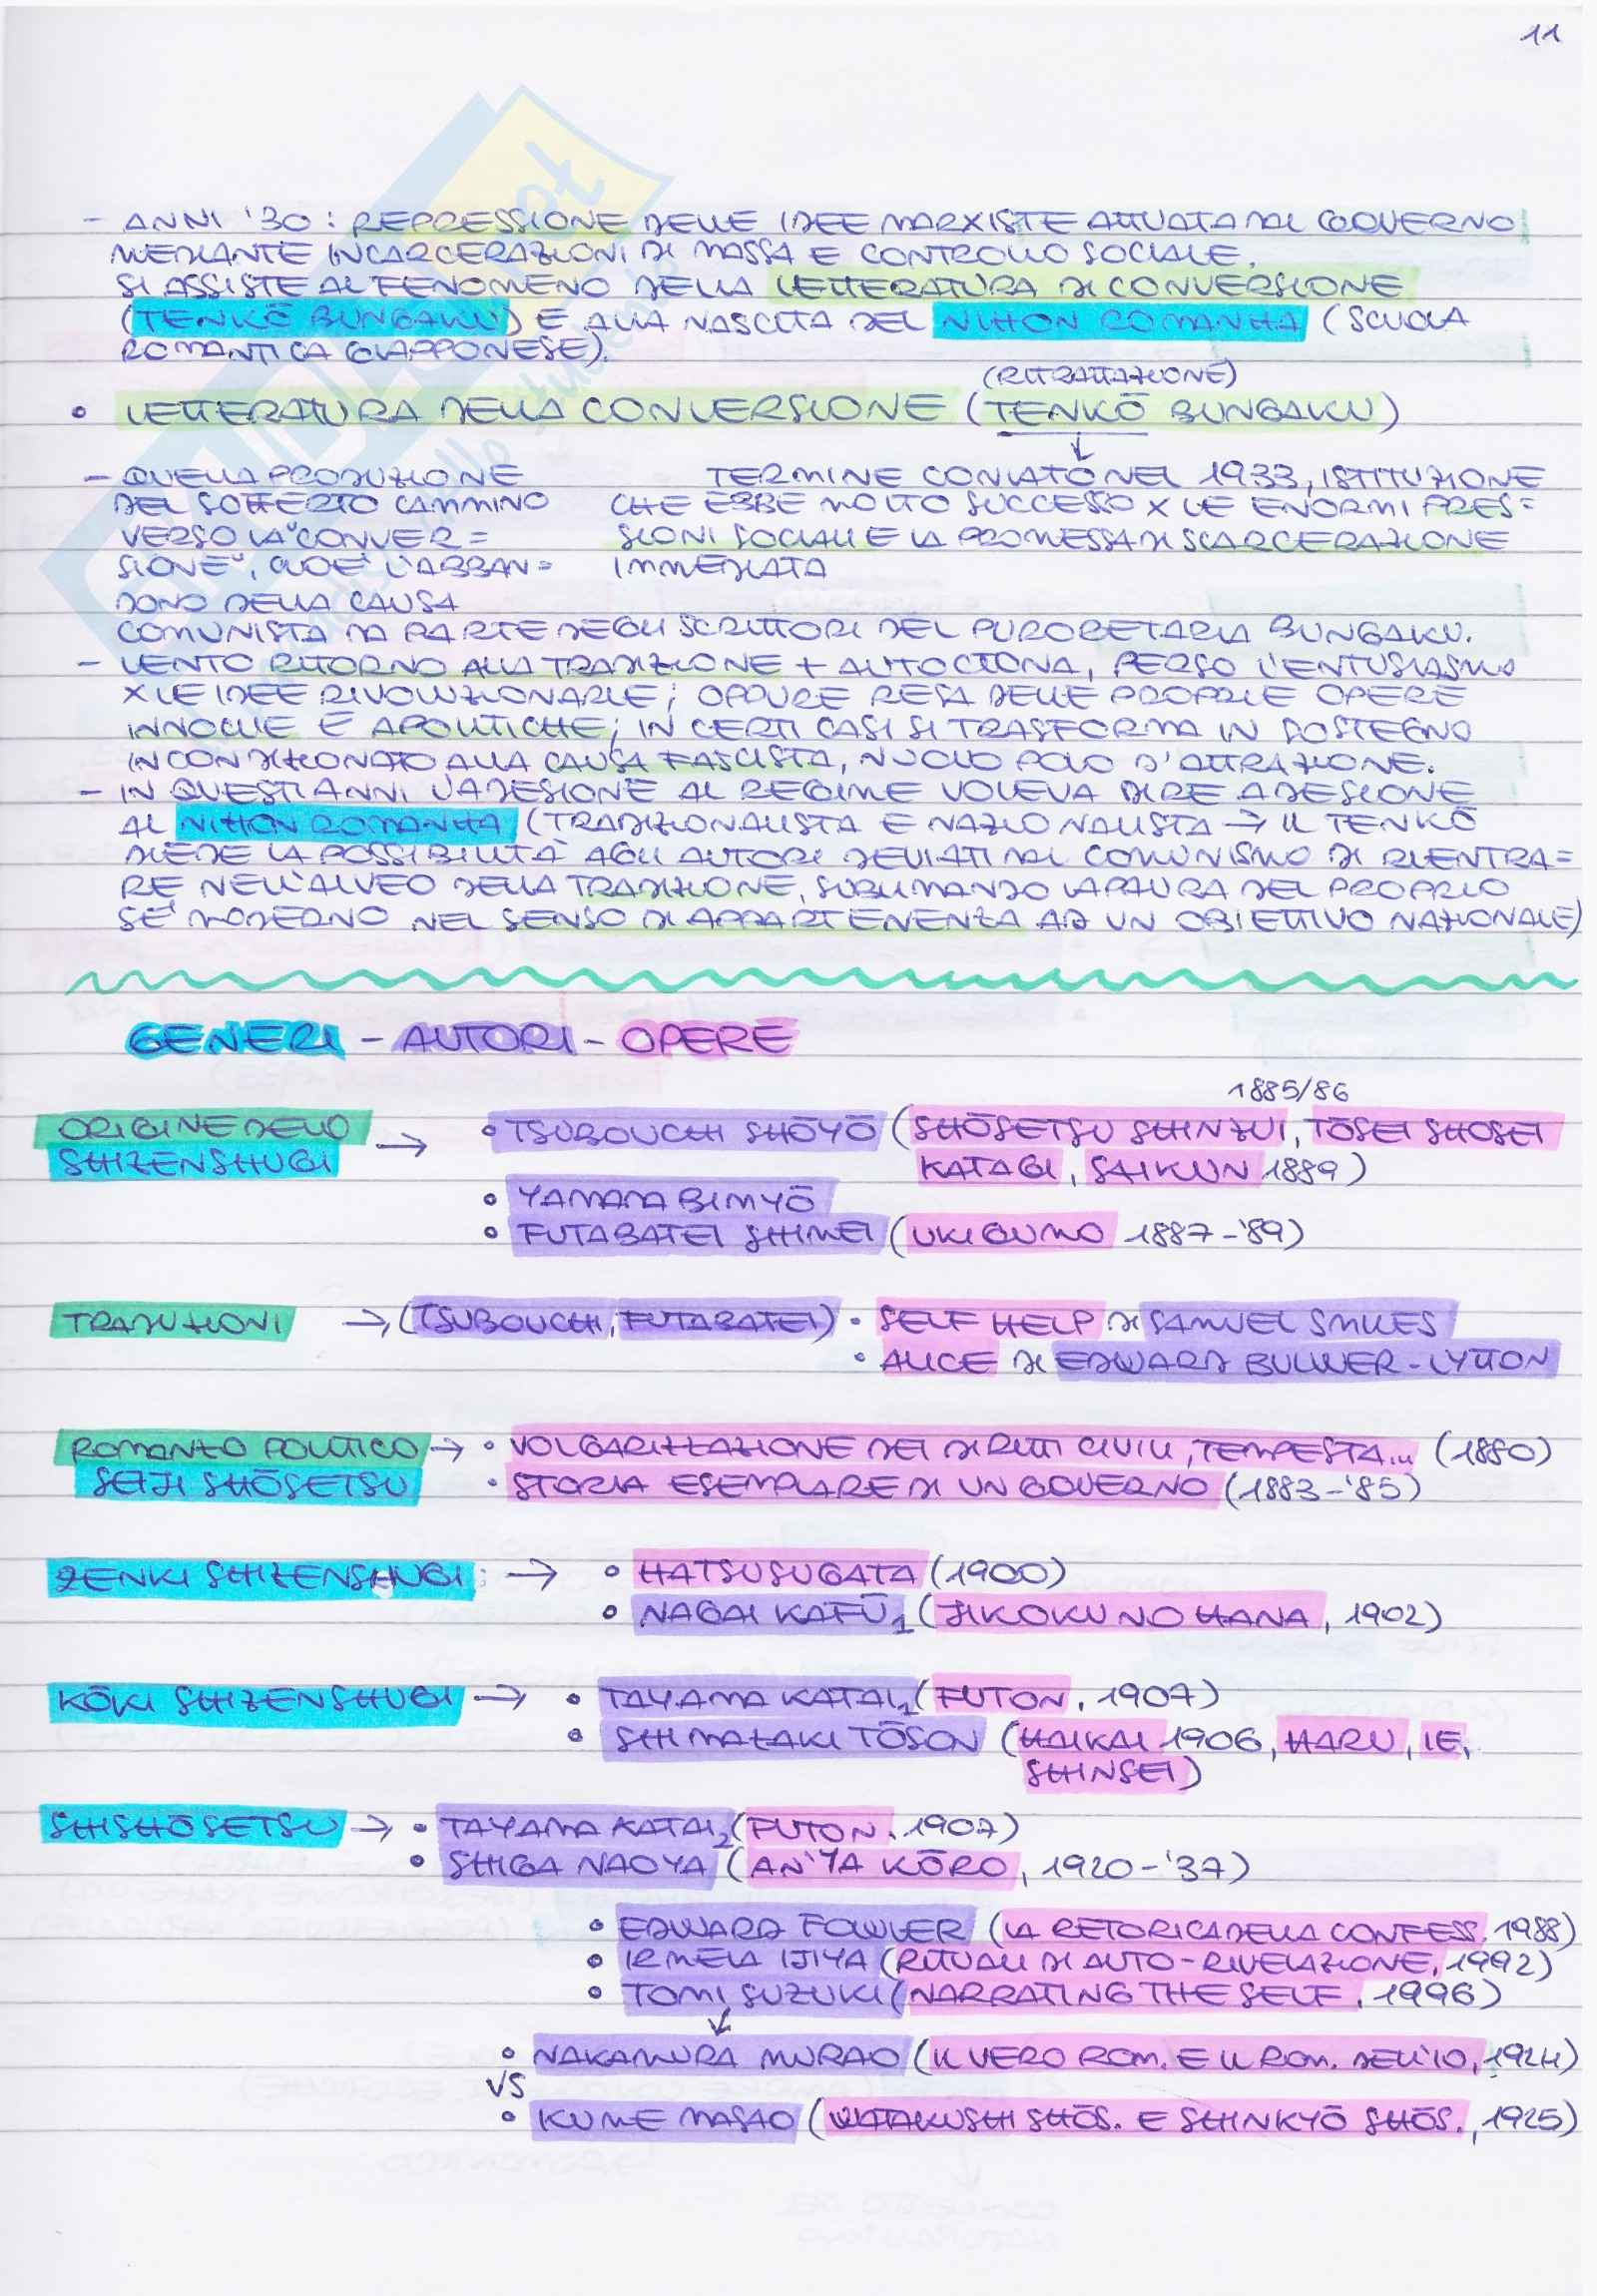 11
- ANNI '30 : REPRESSIONE DELLE IDEE MARXISTE ATTUATA DAL GOVERNO
MEDIANTE INCARCERAZIONI DI MASSA E CONTROLLO SOCIALE.
SI ASSISTE AL FENOMENO DELLA LETTERATURA DI CONVERSIONE
(TENKŌ BUNGAKU) E ALLA NASCITA DEL NIHON ROMANHA (SCUOLA
ROMANTICA GIAPPONESE).
(RITRATTAZIONE)
• LETTERATURA DELLA CONVERSIONE (TENKŌ BUNGAKU)
↓
- QUELLA PRODUZIONE
DEL SOFFERTO CAMMINO
VERSO LA "CONVER=
SIONE", CIOÈ L'ABBAN=
DONO DELLA CAUSA
TERMINE CONIATO NEL 1933, ISTITUZIONE
CHE EBBE MOLTO SUCCESSO X LE ENORMI PRES=
SIONI SOCIALI E LA PROMESSA DI SCARCERAZIONE
IMMEDIATA
COMUNISTA DA PARTE DEGLI SCRITTORI DEL PURORETARIA BUNGAKU.
- LENTO RITORNO ALLA TRADIZIONE + AUTOCTONA, PERSO L'ENTUSIASMO
X LE IDEE RIVOLUZIONARIE; OPPURE RESA DELLE PROPRIE OPERE
INNOCUE E APOLITICHE; IN CERTI CASI SI TRASFORMA IN SOSTEGNO
INCONDIZIONATO ALLA CAUSA FASCISTA, NUOVO POLO D'ATTRAZIONE.
- IN QUESTI ANNI L'ADESIONE AL REGIME VOLEVA DIRE ADESIONE
AL NIHON ROMANHA (TRADIZIONALISTA E NAZIONALISTA → IL TENKŌ
DIEDE LA POSSIBILITÀ AGLI AUTORI DEVIATI DAL COMUNISMO DI RIENTRA=
RE NELL'ALVEO DELLA TRADIZIONE, SUBLIMANDO LA PAURA DEL PROPRIO
SÉ MODERNO NEL SENSO DI APPARTENENZA AD UN OBIETTIVO NAZIONALE)
GENERI - AUTORI - OPERE
1885/86
ORIGINE DELLO → • TSUBOUCHI SHŌYŌ (SHŌSETSU SHINZUI, TŌSEI SHOSEI
SHIZENSHUGI KATAGI, SAIKUN 1889)
• YAMADA BIMYŌ
• FUTABATEI SHIMEI (UKIGUMO 1887-'89)
TRADUZIONI → (TSUBOUCHI, FUTABATEI) • SELF HELP DI SAMUEL SMILES
• ALICE DI EDWARD BULWER-LYTTON
ROMANZO POLITICO → • VOLGARIZZAZIONE DEI DIRITTI CIVILI, TEMPESTA... (1880)
SEIJI SHŌSETSU • STORIA ESEMPLARE DI UN GOVERNO (1883-'85)
ZENKI SHIZENSHUGI → • HATSUSUGATA (1900)
• NAGAI KAFŪ 1 (JIKOKU NO HANA, 1902)
KŌKI SHIZENSHUGI → • TAYAMA KATAI 1 (FUTON, 1907)
• SHIMAZAKI TŌSON (HAIKAI 1906, HARU, IE,
SHINSEI)
SHISHŌSETSU → • TAYAMA KATAI 2 (FUTON, 1907)
• SHIGA NAOYA (AN'YA KŌRO, 1920-'37)
• EDWARD FOWLER (LA RETORICA DELLA CONFESS. 1988)
• IRMELA IJIYA (RITUALI DI AUTO-RIVELAZIONE, 1992)
• TOMI SUZUKI (NARRATING THE SELF, 1996)
↓
• NAKAMURA MURAO (IL VERO ROM. E IL ROM. DELL'IO, 1924)
VS
• KUME MASAO (WATAKUSHI SHŌS. E SHINKYŌ SHŌS., 1925)